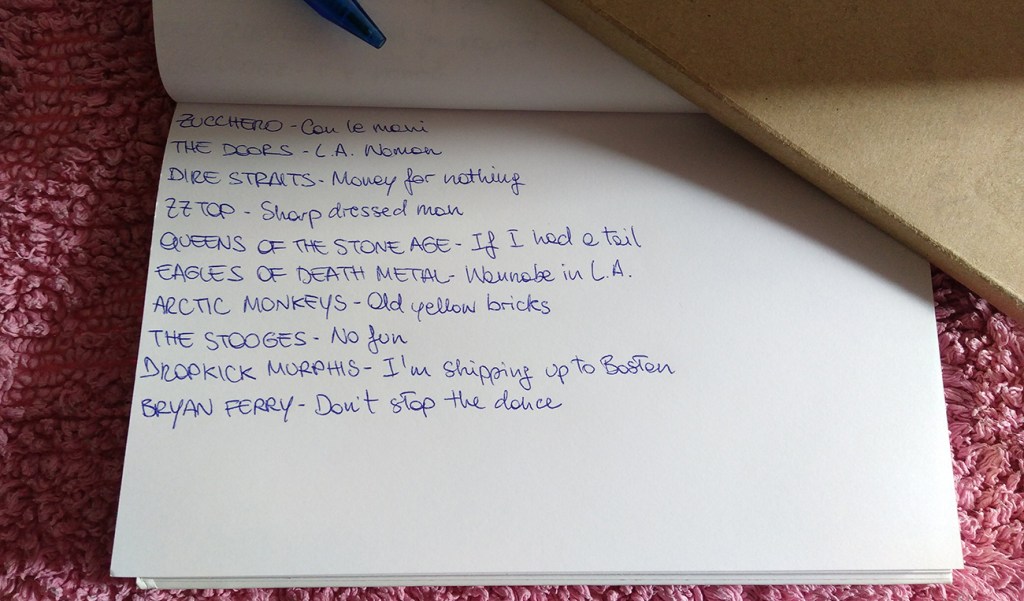 ZUCCHERO - Con le mani
THE DOORS - L.A. Woman
DIRE STRAITS - Money for nothing
ZZ TOP - Sharp dressed man
QUEENS OF THE STONE AGE - If I had a tail
EAGLES OF DEATH METAL - Wannabe in L.A.
ARCTIC MONKEYS - Old yellow bricks
THE STOOGES - No fun
DROPKICK MURPHIS - I'm shipping up to Boston
BRYAN FERRY - Don't stop the dance